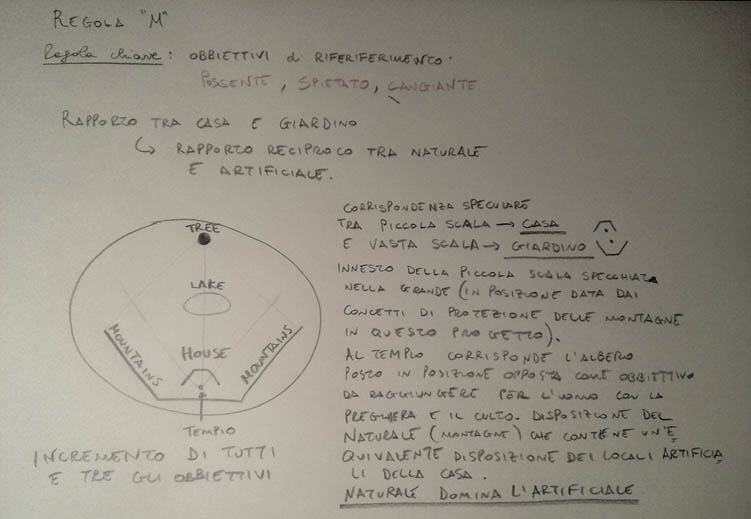 REGOLA "M"
Regola chiave: OBBIETTIVI di RIFERIFERIMENTO:
POSSENTE, SPIETATO, CANGIANTE
RAPPORTO TRA CASA E GIARDINO
↳ RAPPORTO RECIPROCO TRA NATURALE
E ARTIFICIALE.
CORRISPONDENZA SPECULARE
TRA PICCOLA SCALA → CASA
E VASTA SCALA → GIARDINO
INNESTO DELLA PICCOLA SCALA SPECCHIATA
NELLA GRANDE (IN POSIZIONE DATA DAI
CONCETTI DI PROTEZIONE DELLE MONTAGNE
IN QUESTO PROGETTO).
AL TEMPIO CORRISPONDE L'ALBERO
POSTO IN POSIZIONE OPPOSTA COME OBBIETTIVO
DA RAGGIUNGERE PER L'UOMO CON LA
PREGHIERA E IL CULTO. DISPOSIZIONE DEL
NATURALE (MONTAGNE) CHE CONTIENE UN'E
QUIVALENTE DISPOSIZIONE DEI LOCALI ARTIFICIA
LI DELLA CASA.
NATURALE DOMINA L'ARTIFICIALE
TREE
LAKE
MOUNTAINS
HOUSE
MOUNTAINS
TEMPIO
INCREMENTO DI TUTTI
E TRE GLI OBBIETTIVI